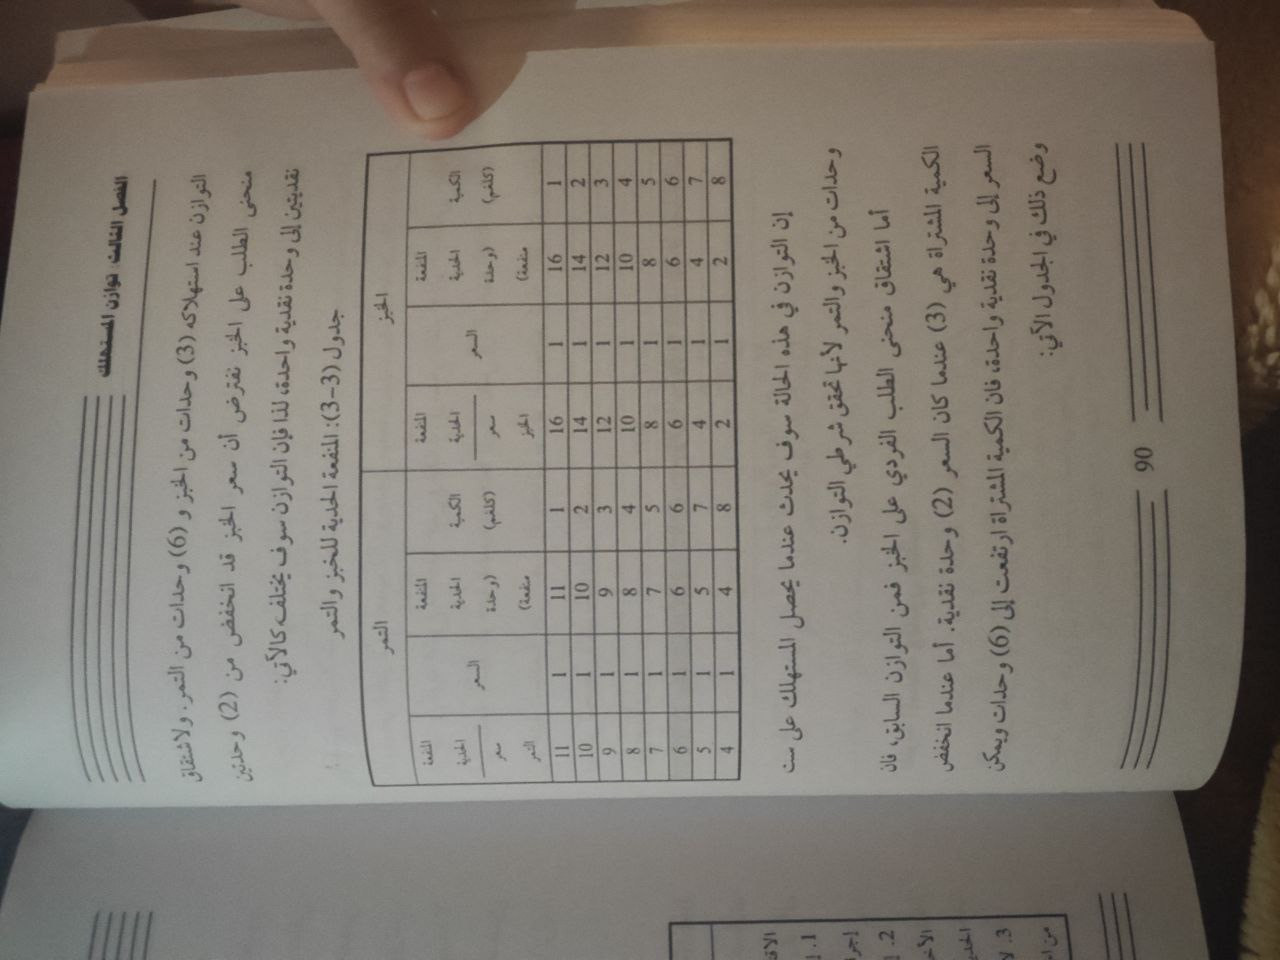 الفصل الثالث: توازن المستهلك
التوازن عند استهلاكه (3) وحدات من الخبز و (6) وحدات من التمر. ولاشتقاق
منحنى الطلب على الخبز نفترض أن سعر الخبز قد انخفض من (2) وحدتين
نقديتين إلى وحدة نقدية واحدة، لذا فإن التوازن سوف يختلف كالآتي:
جدول (3-3): المنفعة الحدية للخبز والتمر
الخبز التمر
الكمية (كلغم) المنفعة الحدية (وحدة منفعة) السعر المنفعة الحدية سعر الخبز الكمية (كلغم) المنفعة الحدية (وحدة منفعة) السعر المنفعة الحدية سعر التمر
1 16 1 16 1 11 1 11
2 14 1 14 2 10 1 10
3 12 1 12 3 9 1 9
4 10 1 10 4 8 1 8
5 8 1 8 5 7 1 7
6 6 1 6 6 6 1 6
7 4 1 4 7 5 1 5
8 2 1 2 8 4 1 4
إن التوازن في هذه الحالة سوف يحدث عندما يحصل المستهلك على ست
وحدات من الخبز والتمر لأنها تحقق شرطي التوازن.
أما اشتقاق منحنى الطلب الفردي على الخبز فمن التوازن السابق، فان
الكمية المشتراة هي (3) عندما كان السعر (2) وحدة نقدية. أما عندما انخفض
السعر إلى وحدة نقدية واحدة، فان الكمية المشتراة ارتفعت إلى (6) وحدات ويمكن
وضع ذلك في الجدول الآتي:
90
1.
2.
3.